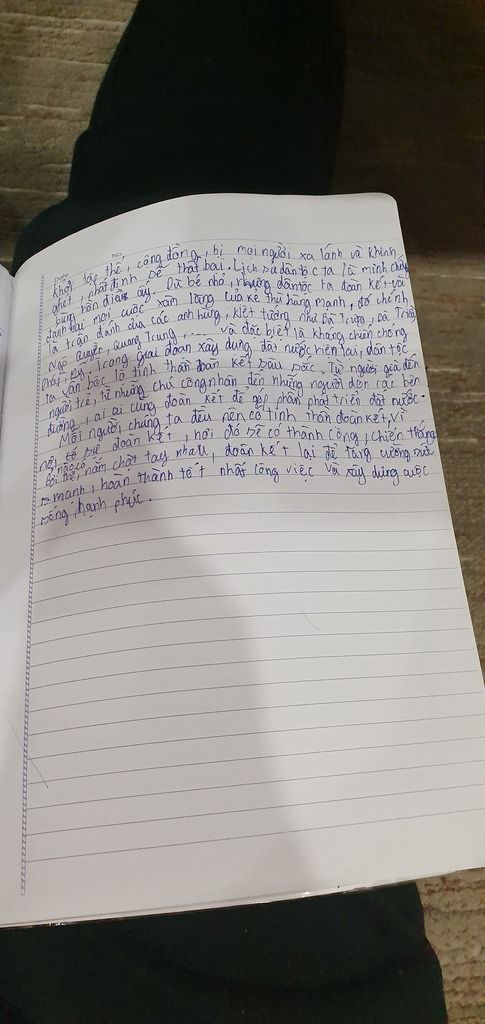 Date No.
khỏi tập thể, cộng đồng, bị mọi người xa lánh và khinh
ghét, nhất định sẽ thất bại. Lịch sử dân tộc ta là minh chứng
hùng hồn điều ấy. Dù bé nhỏ, nhưng dân tộc ta đoàn kết với
đánh bại mọi cuộc xâm lăng của kẻ thù hùng mạnh, đó chính
là trận đánh của các anh hùng, kiệt tướng như Bà Trưng, Bà Triệu,
Ngô Quyền, Quang Trung, ...... và đặc biệt là kháng chiến chống
Pháp, Mỹ. Trong giai đoạn xây dựng đất nước hiện tại, dân tộc
ta vẫn bộc lộ tinh thần đoàn kết sâu sắc. Từ người già đến
người trẻ, từ những chú công nhân đến những người dọn rác bên
đường, ai ai cũng đoàn kết để góp phần phát triển đất nước.
Mỗi người chúng ta đều nên có tinh thần đoàn kết, vì
nơi nào có sự đoàn kết, nơi đó sẽ có thành công, chiến thắng
Bởi thế, nắm chặt tay nhau, đoàn kết lại để tăng cường sức
mạnh, hoàn thành tốt nhất công việc và xây dựng cuộc
sống hạnh phúc.